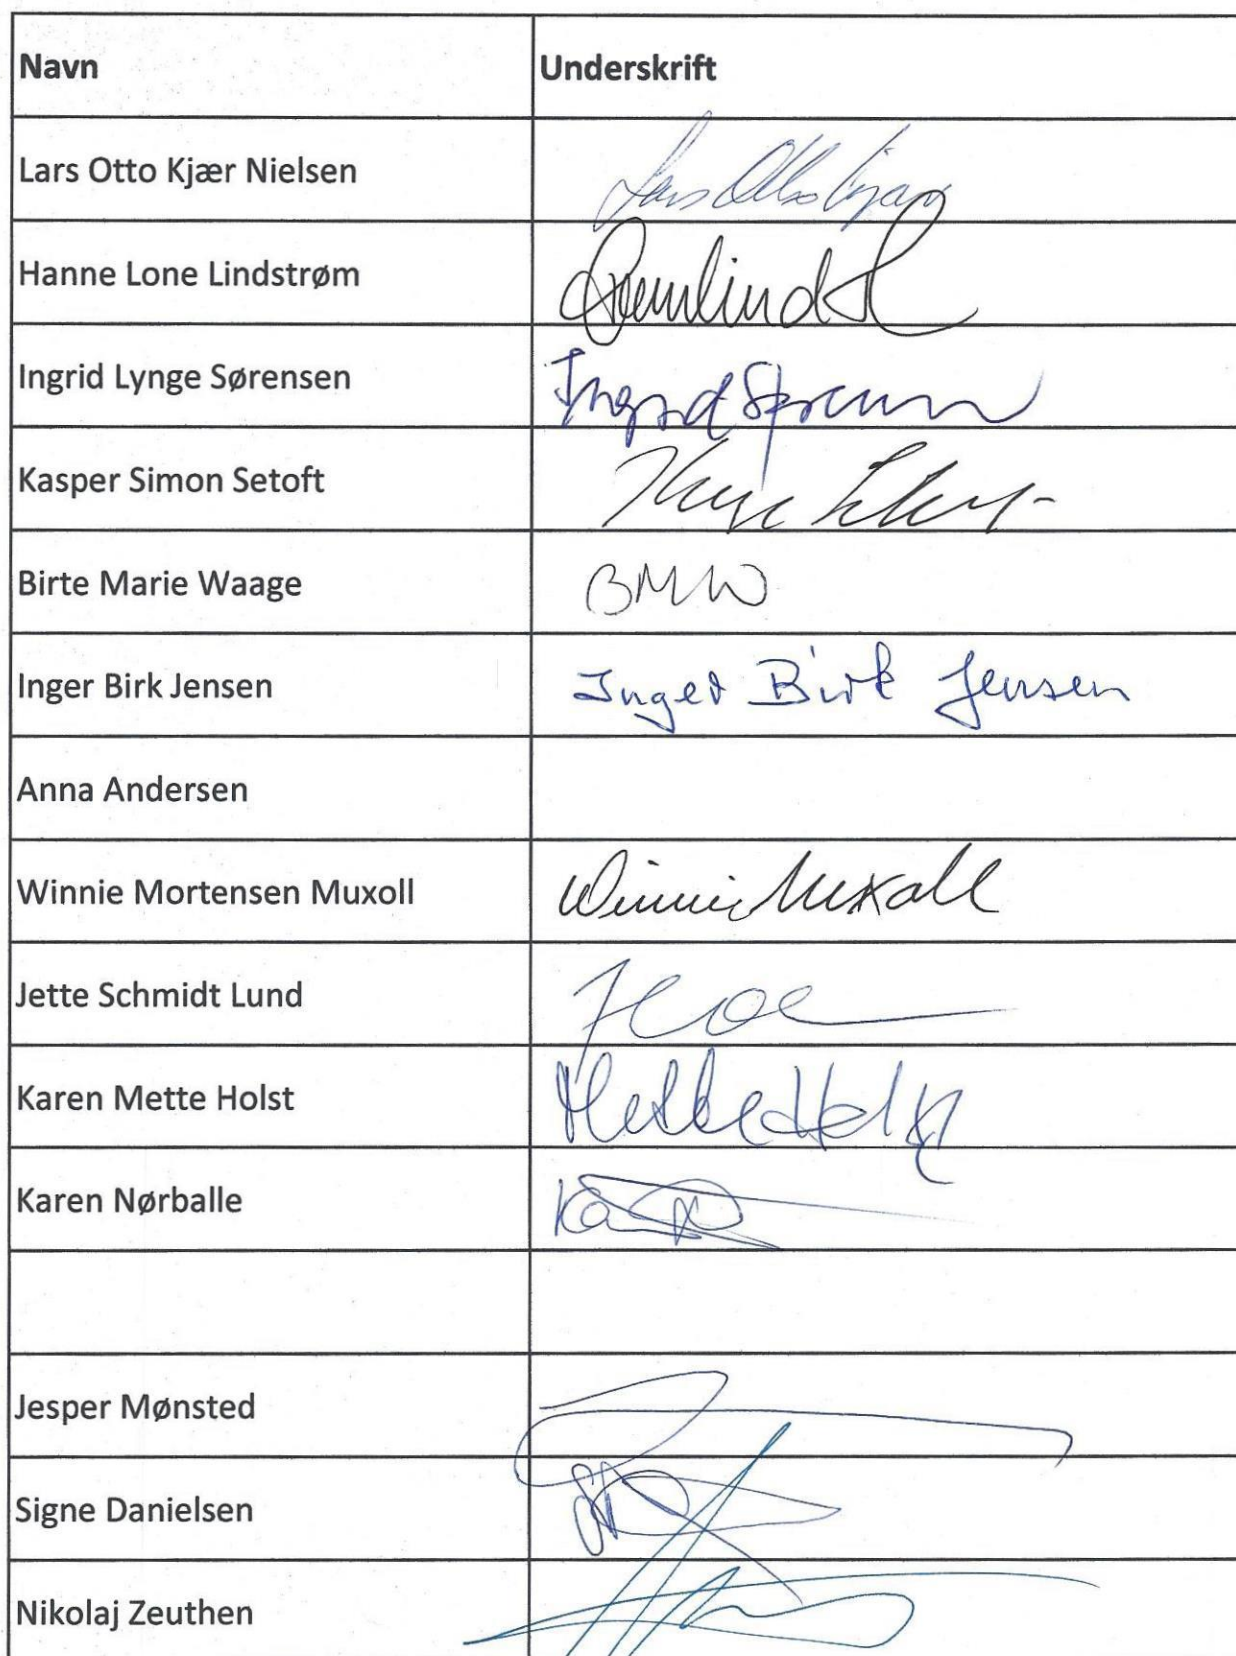 Navn Underskrift
Lars Otto Kjær Nielsen Lars Otto Kjær
Hanne Lone Lindstrøm
Ingrid Lynge Sørensen Ingrid Sørensen
Kasper Simon Setoft
Birte Marie Waage BMW
Inger Birk Jensen Inger Birk Jensen
Anna Andersen
Winnie Mortensen Muxoll Winnie Muxoll
Jette Schmidt Lund
Karen Mette Holst Mette Holst
Karen Nørballe
Jesper Mønsted
Signe Danielsen
Nikolaj Zeuthen